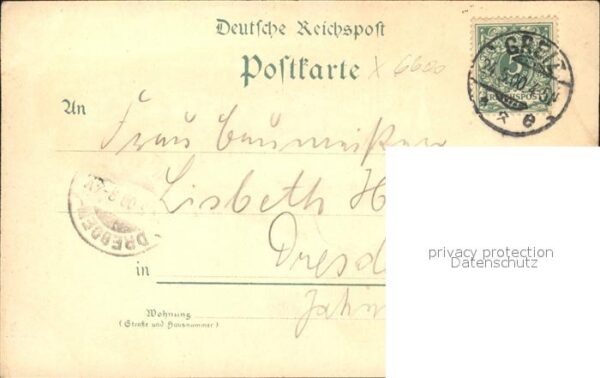 Deutsche Reichspost
Postkarte X 6600
An Frau Baumeister
Lisbeth H
in Dresd
Jahn
Wohnung
(Straße und Hausnummer)
GREIZ
5
REICHSPOST
DRESDEN
privacy protection
Datenschutz